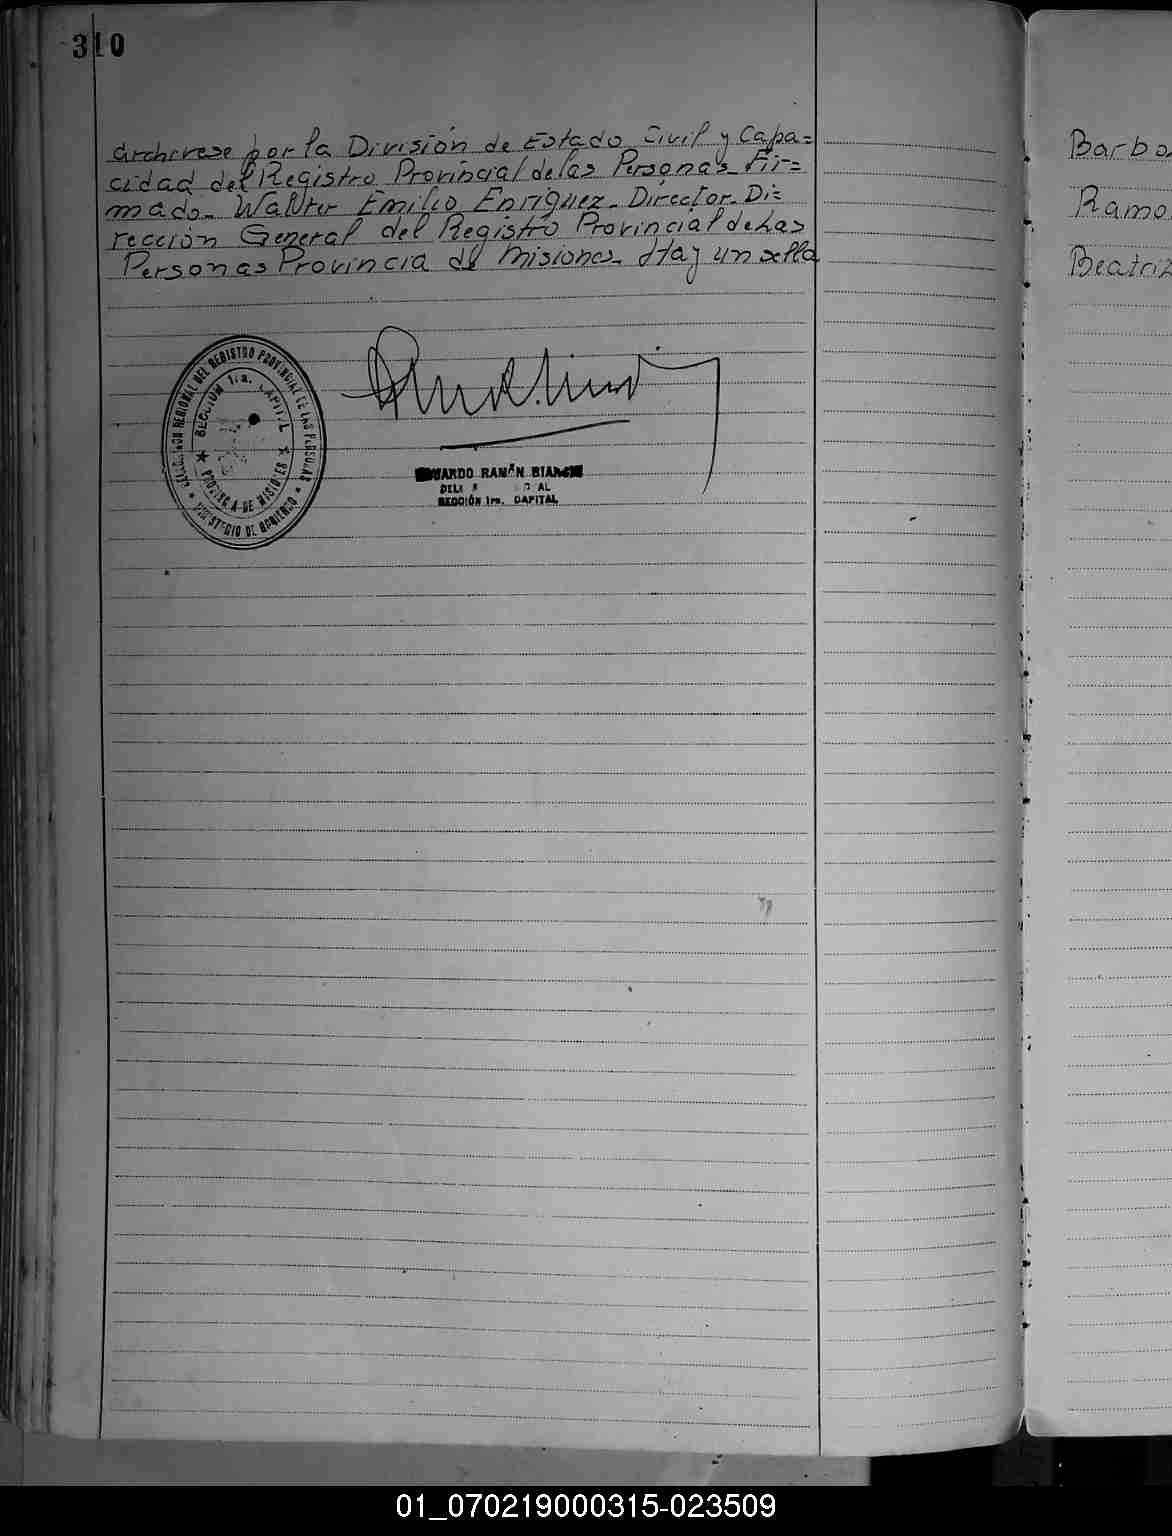 310
archivese por la División de Estado Civil y Capa=
cidad del Registro Provincial de las Personas_ Fir=
mado_ Walter Emilio Enriquez_ Director_ Di=
rección General del Registro Provincial de Las
Personas Provincia de Misiones_ Hay un sello
REGIONAL DEL REGISTRO PROVINCIAL DE LAS PERSONAS
SECCION 1ra. CAPITAL
PROVINCIA DE MISIONES
MINISTERIO DE GOBIERNO
EDUARDO RAMÓN BIANCHI
SECCIÓN 1ra. CAPITAL
Barbo
Ramo
Beatriz
01_070219000315-023509